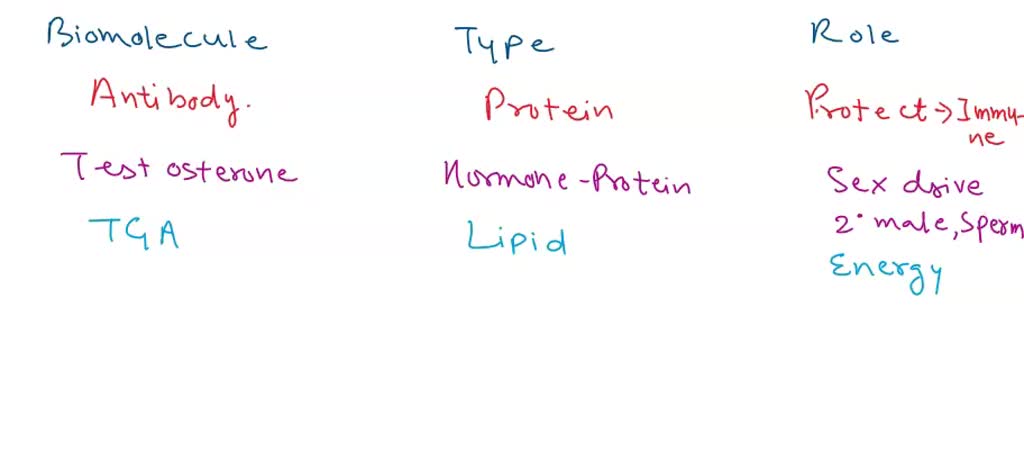 Biomolecule Type Role
Antibody. Protein Protect → Immu-
ne
Testosterone Hormone-Protein Sex drive
2° male, Sperm
TGA Lipid Energy